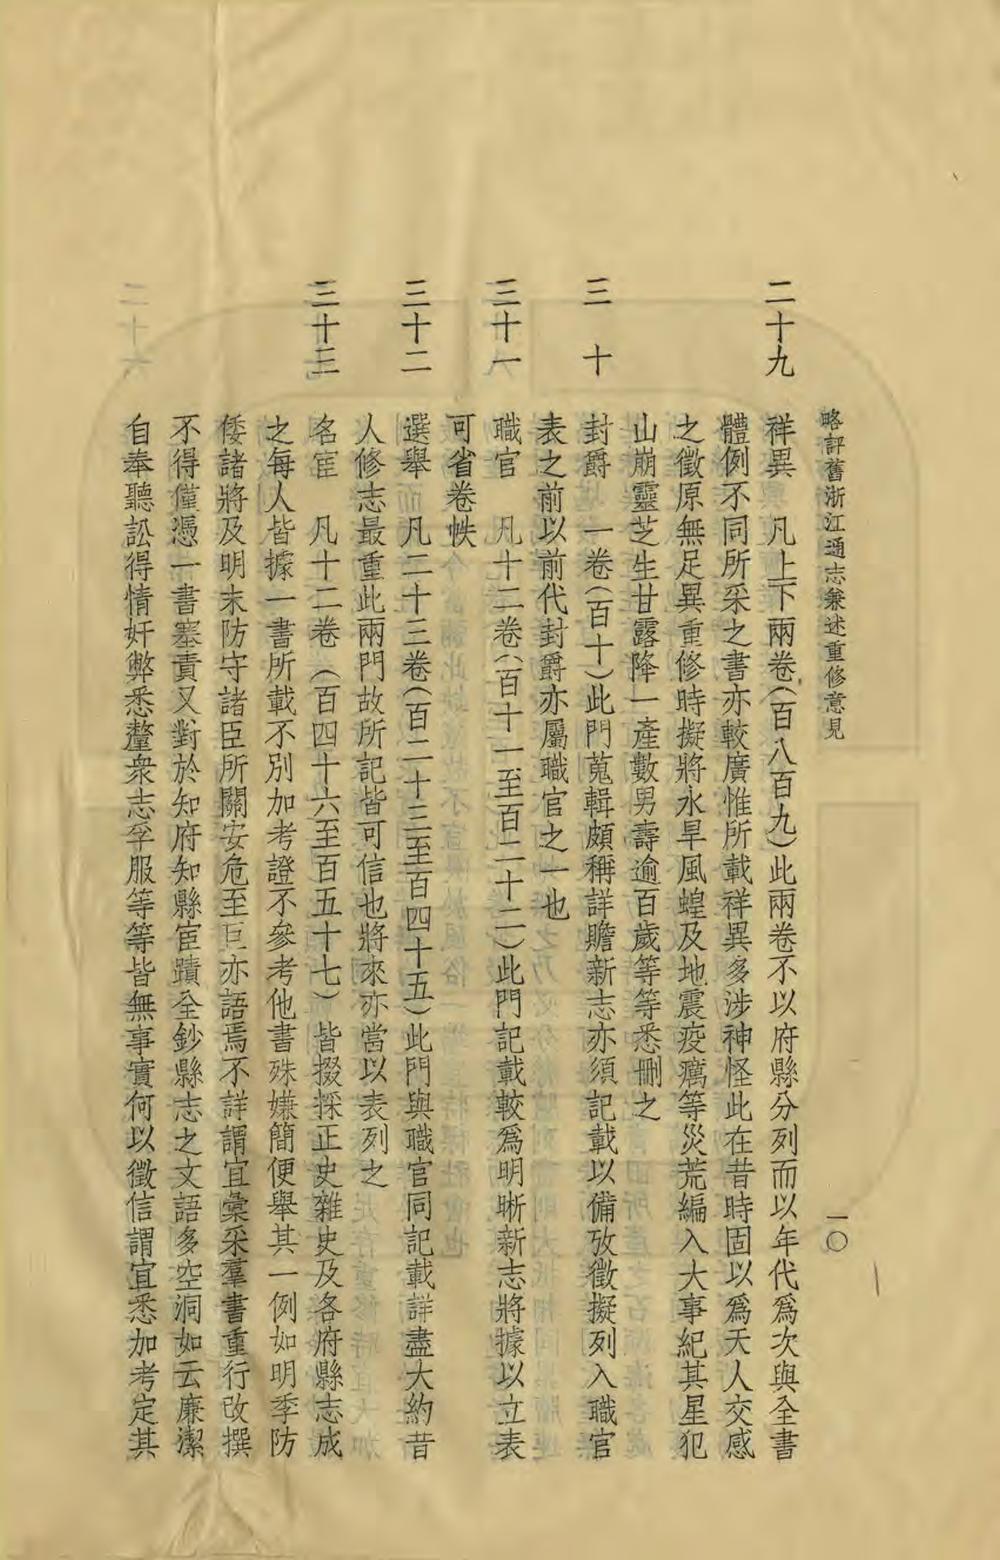 略評舊浙江通志兼述重修意見
一〇
二十九
祥異　凡上下兩卷（百八百九）此兩卷不以府縣分列而以年代爲次與全書
體例不同所采之書亦較廣惟所載祥異多涉神怪此在昔時固以爲天人交感
之徵原無足異重修時擬將水旱風蝗及地震疫癘等災荒編入大事紀其星犯
山崩靈芝生甘露降一產數男壽逾百歲等等悉刪之
三十
封爵　一卷（百十）此門蒐輯頗稱詳贍新志亦須記載以備攷徵擬列入職官
表之前以前代封爵亦屬職官之一也
三十一
職官　凡十二卷（百十一至百二十二）此門記載較爲明晰新志將據以立表
可省卷帙
三十二
選舉　凡二十三卷（百二十三至百四十五）此門與職官同記載詳盡大約昔
人修志最重此兩門故所記皆可信也將來亦當以表列之
三十三
名宦　凡十二卷（百四十六至百五十七）皆掇採正史雜史及各府縣志成
之每人皆據一書所載不別加考證不參考他書殊嫌簡便舉其一例如明季防
倭諸將及明末防守諸臣所關安危至巨亦語焉不詳謂宜彙采羣書重行改撰
不得僅憑一書塞責又對於知府知縣宦蹟全鈔縣志之文語多空洞如云廉潔
自奉聽訟得情奸弊悉釐衆志孚服等等皆無事實何以徵信謂宜悉加考定其